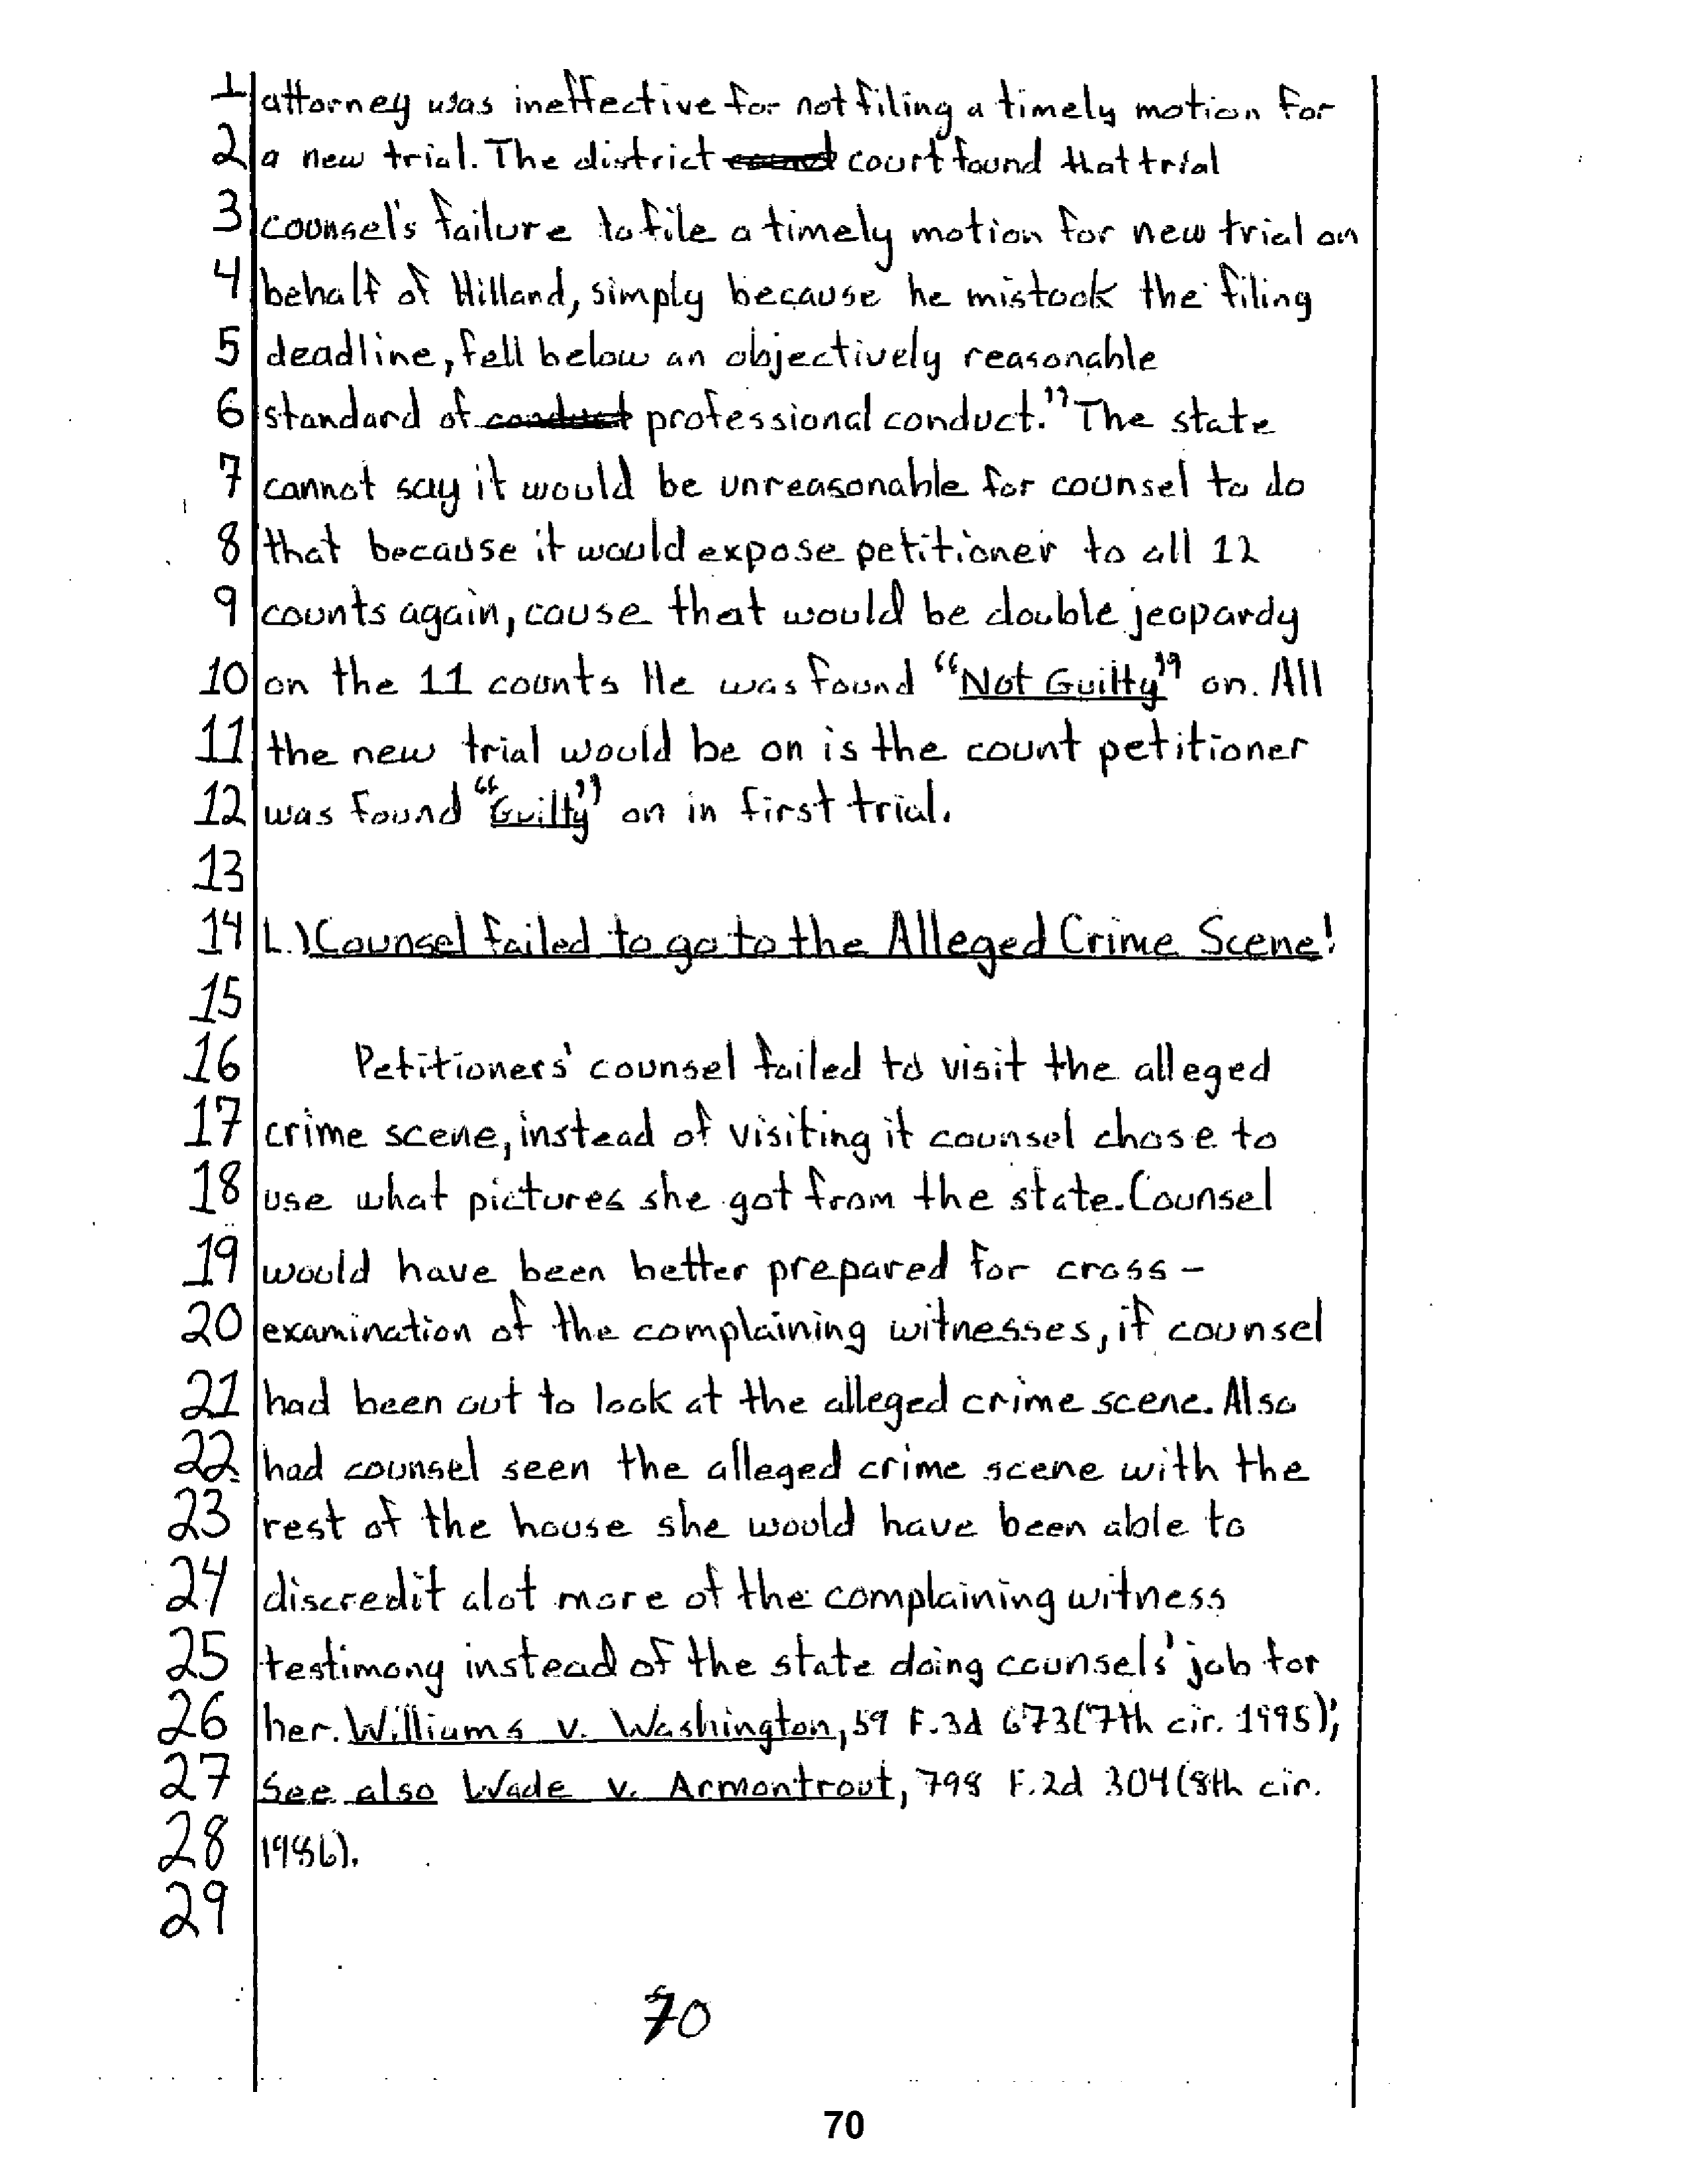 1 attorney was ineffective for not filing a timely motion for
2 a new trial. The district court found that trial
3 counsel's failure to file a timely motion for new trial on
4 behalf of Hilland, simply because he mistook the filing
5 deadline, fell below an objectively reasonable
6 standard of conduct professional conduct." The state
7 cannot say it would be unreasonable for counsel to do
8 that because it would expose petitioner to all 12
9 counts again, cause that would be double jeopardy
10 on the 11 counts He was found "Not Guilty" on. All
11 the new trial would be on is the count petitioner
12 was found "Guilty" on in first trial.
13
14 L.) Counsel failed to go to the Alleged Crime Scene!
15
16 Petitioners' counsel failed to visit the alleged
17 crime scene, instead of visiting it counsel chose to
18 use what pictures she got from the state. Counsel
19 would have been better prepared for cross-
20 examination of the complaining witnesses, if counsel
21 had been out to look at the alleged crime scene. Also
22 had counsel seen the alleged crime scene with the
23 rest of the house she would have been able to
24 discredit alot more of the complaining witness
25 testimony instead of the state doing counsels' job for
26 her. Williams v. Washington, 59 F.3d 673 (7th cir. 1995);
27 See also Wade v. Armontrout, 798 F.2d 304 (8th cir.
28 1986).
29
70
70